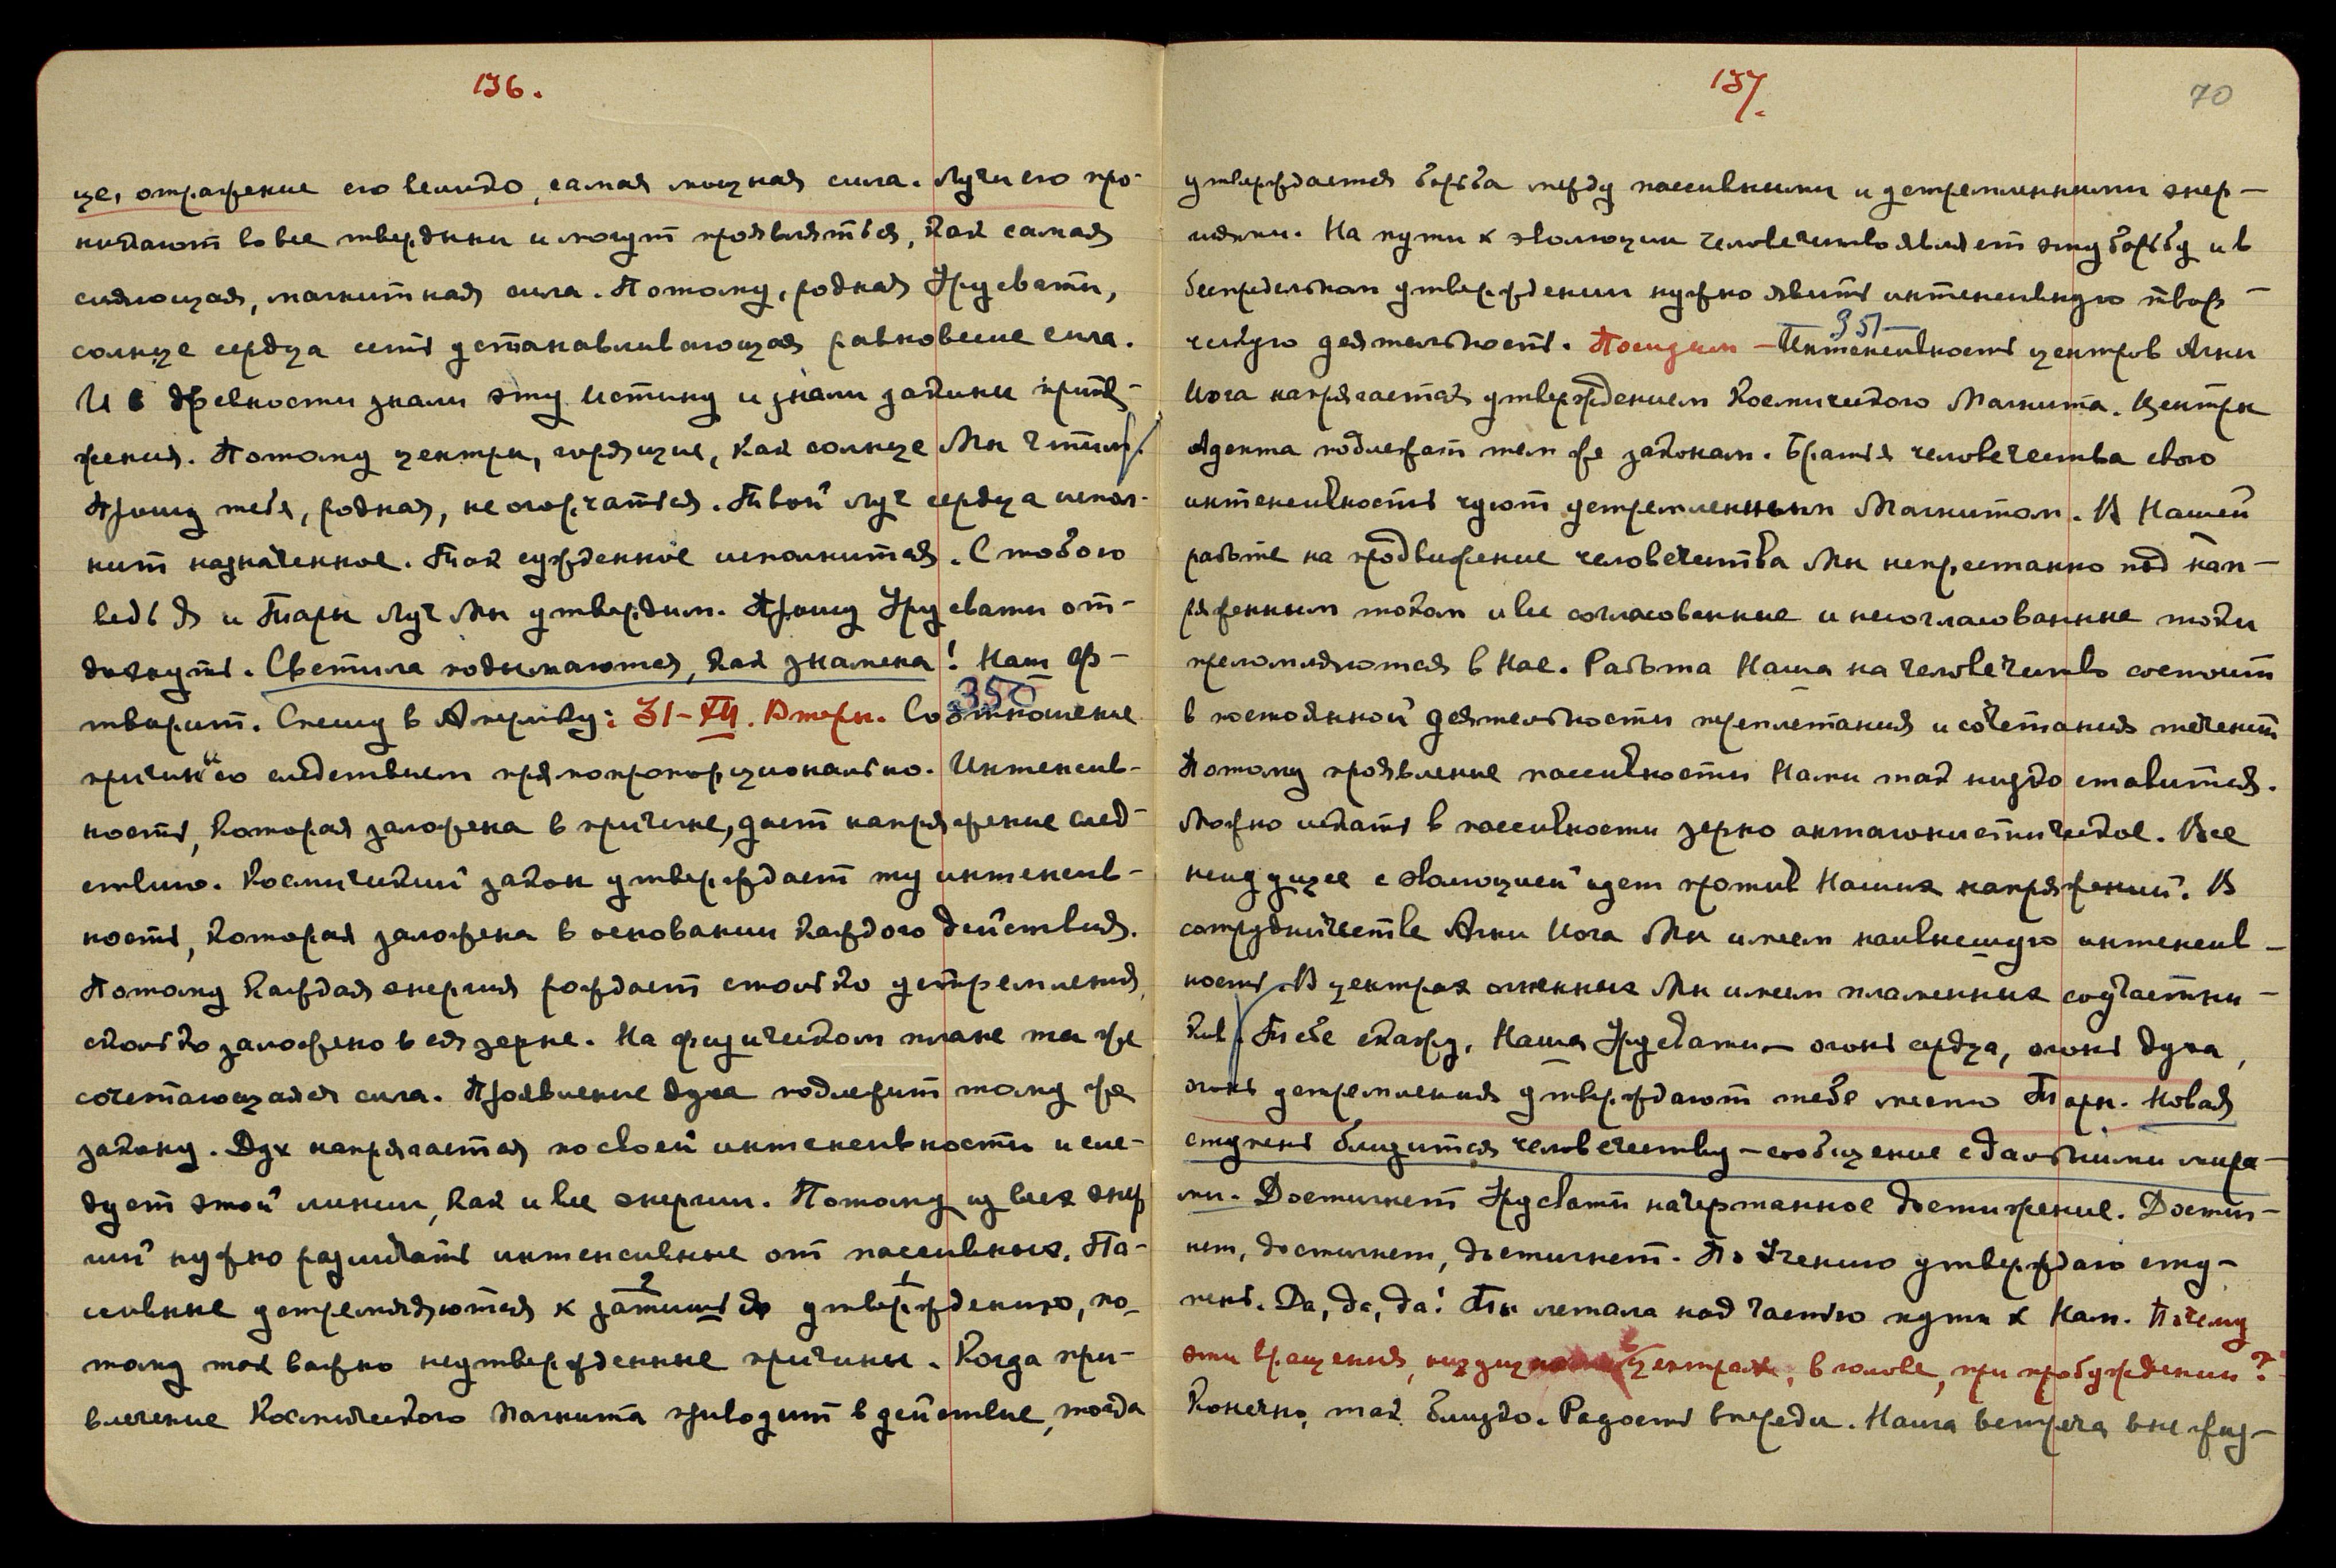 136.
це, отражение его велико, самая мощная сила. Лучи его про-
никают во все твердыни и могут проявляться, как самая
сияющая, магнитная сила. Потому, родная Урусвати,
солнце сердца есть устанавливающая равновесие сила.
И в древности знали эту истину и знали законы притя-
жения. Потому центры, горящие, как солнце Мы чтим.
Прошу тебя, родная, не огорчаться. Твой луч сердца испол-
нит назначенное. Так сужденное исполнится. С тобою
ведь Я и Тары Луч Мы утвердим. Прошу Урусвати от-
дохнуть. Светила поднимаются, как знамена! Наш Ф-
350
творит. Спешу в Америку: 31-XII. Вторн. Соотношение
причины со следствием прямопропорционально. Интенсив-
ность, которая заложена в причине, дает напряжение след-
ствию. Космический закон утверждает ту интенсив-
ность, которая заложена в основании каждого действия.
Потому каждая энергия рождает столько устремления,
сколько заложено в ея зерне. На физическом плане та же
сочетающаяся сила. Проявление духа подлежит тому же
закону. Дух напрягается по своей интенсивности и сле-
дует этой линии, как и все энергии. Потому из всех энер
гий нужно различать интенсивные от пассивных. Па-
2 1
ссивные устремляются к затишью до утверждению, по-
тому так важно неутвержденные причины. Когда при-
влечение Космического Магнита приводит в действие, тогда
137.
70
утверждается борьба между пассивными и устремленными энер-
гиями. На пути к эволюции человечество являет эту борьбу и в
беспредельном утверждении нужно явить интенсивную твор-
351
ческую деятельность. Посидим - Интенсивность центров Агни
Йога напрягается утверждением Космического Магнита. Центры
Адепта подлежат тем же законам. Братья человечества свою
интенсивность чуют устремленным Магнитом. В Нашей
работе на продвижение человечества Мы непрестанно под нап-
ряженным током и все согласованные и несогласованные токи
преломляются в Нас. Работа Наша на человечество состоит
в постоянной деятельности переплетания и сочетания течений
Потому проявление пассивности Нами так низко ставится.
Можно искать в пассивности зерно антагонистическое. Все
неидущее с эволюцией идет против Наших напряжений. В
сотрудничестве Агни Йога Мы имеем наивысшую интенсив-
ность. В центрах огненных Мы имеем пламенных соучастни-
ков. Тебе скажу, Наша Урусвати - огонь сердца, огонь духа,
огонь устремления утверждают тебе место Тары. Новая
ступень близится человечеству - сообщение с дальними мира-
ми. Достигнет Урусвати начертанное достижение. Достиг-
нет, достигнет, достигнет. По Учению утверждаю сту-
пень. Да, да, да! Ты летала над частью пути к Нам. Почему
эти вращения, центрах, в голове, при пробуждении?
Конечно, так близко. Радость впереди. Наша встреча вне физ-